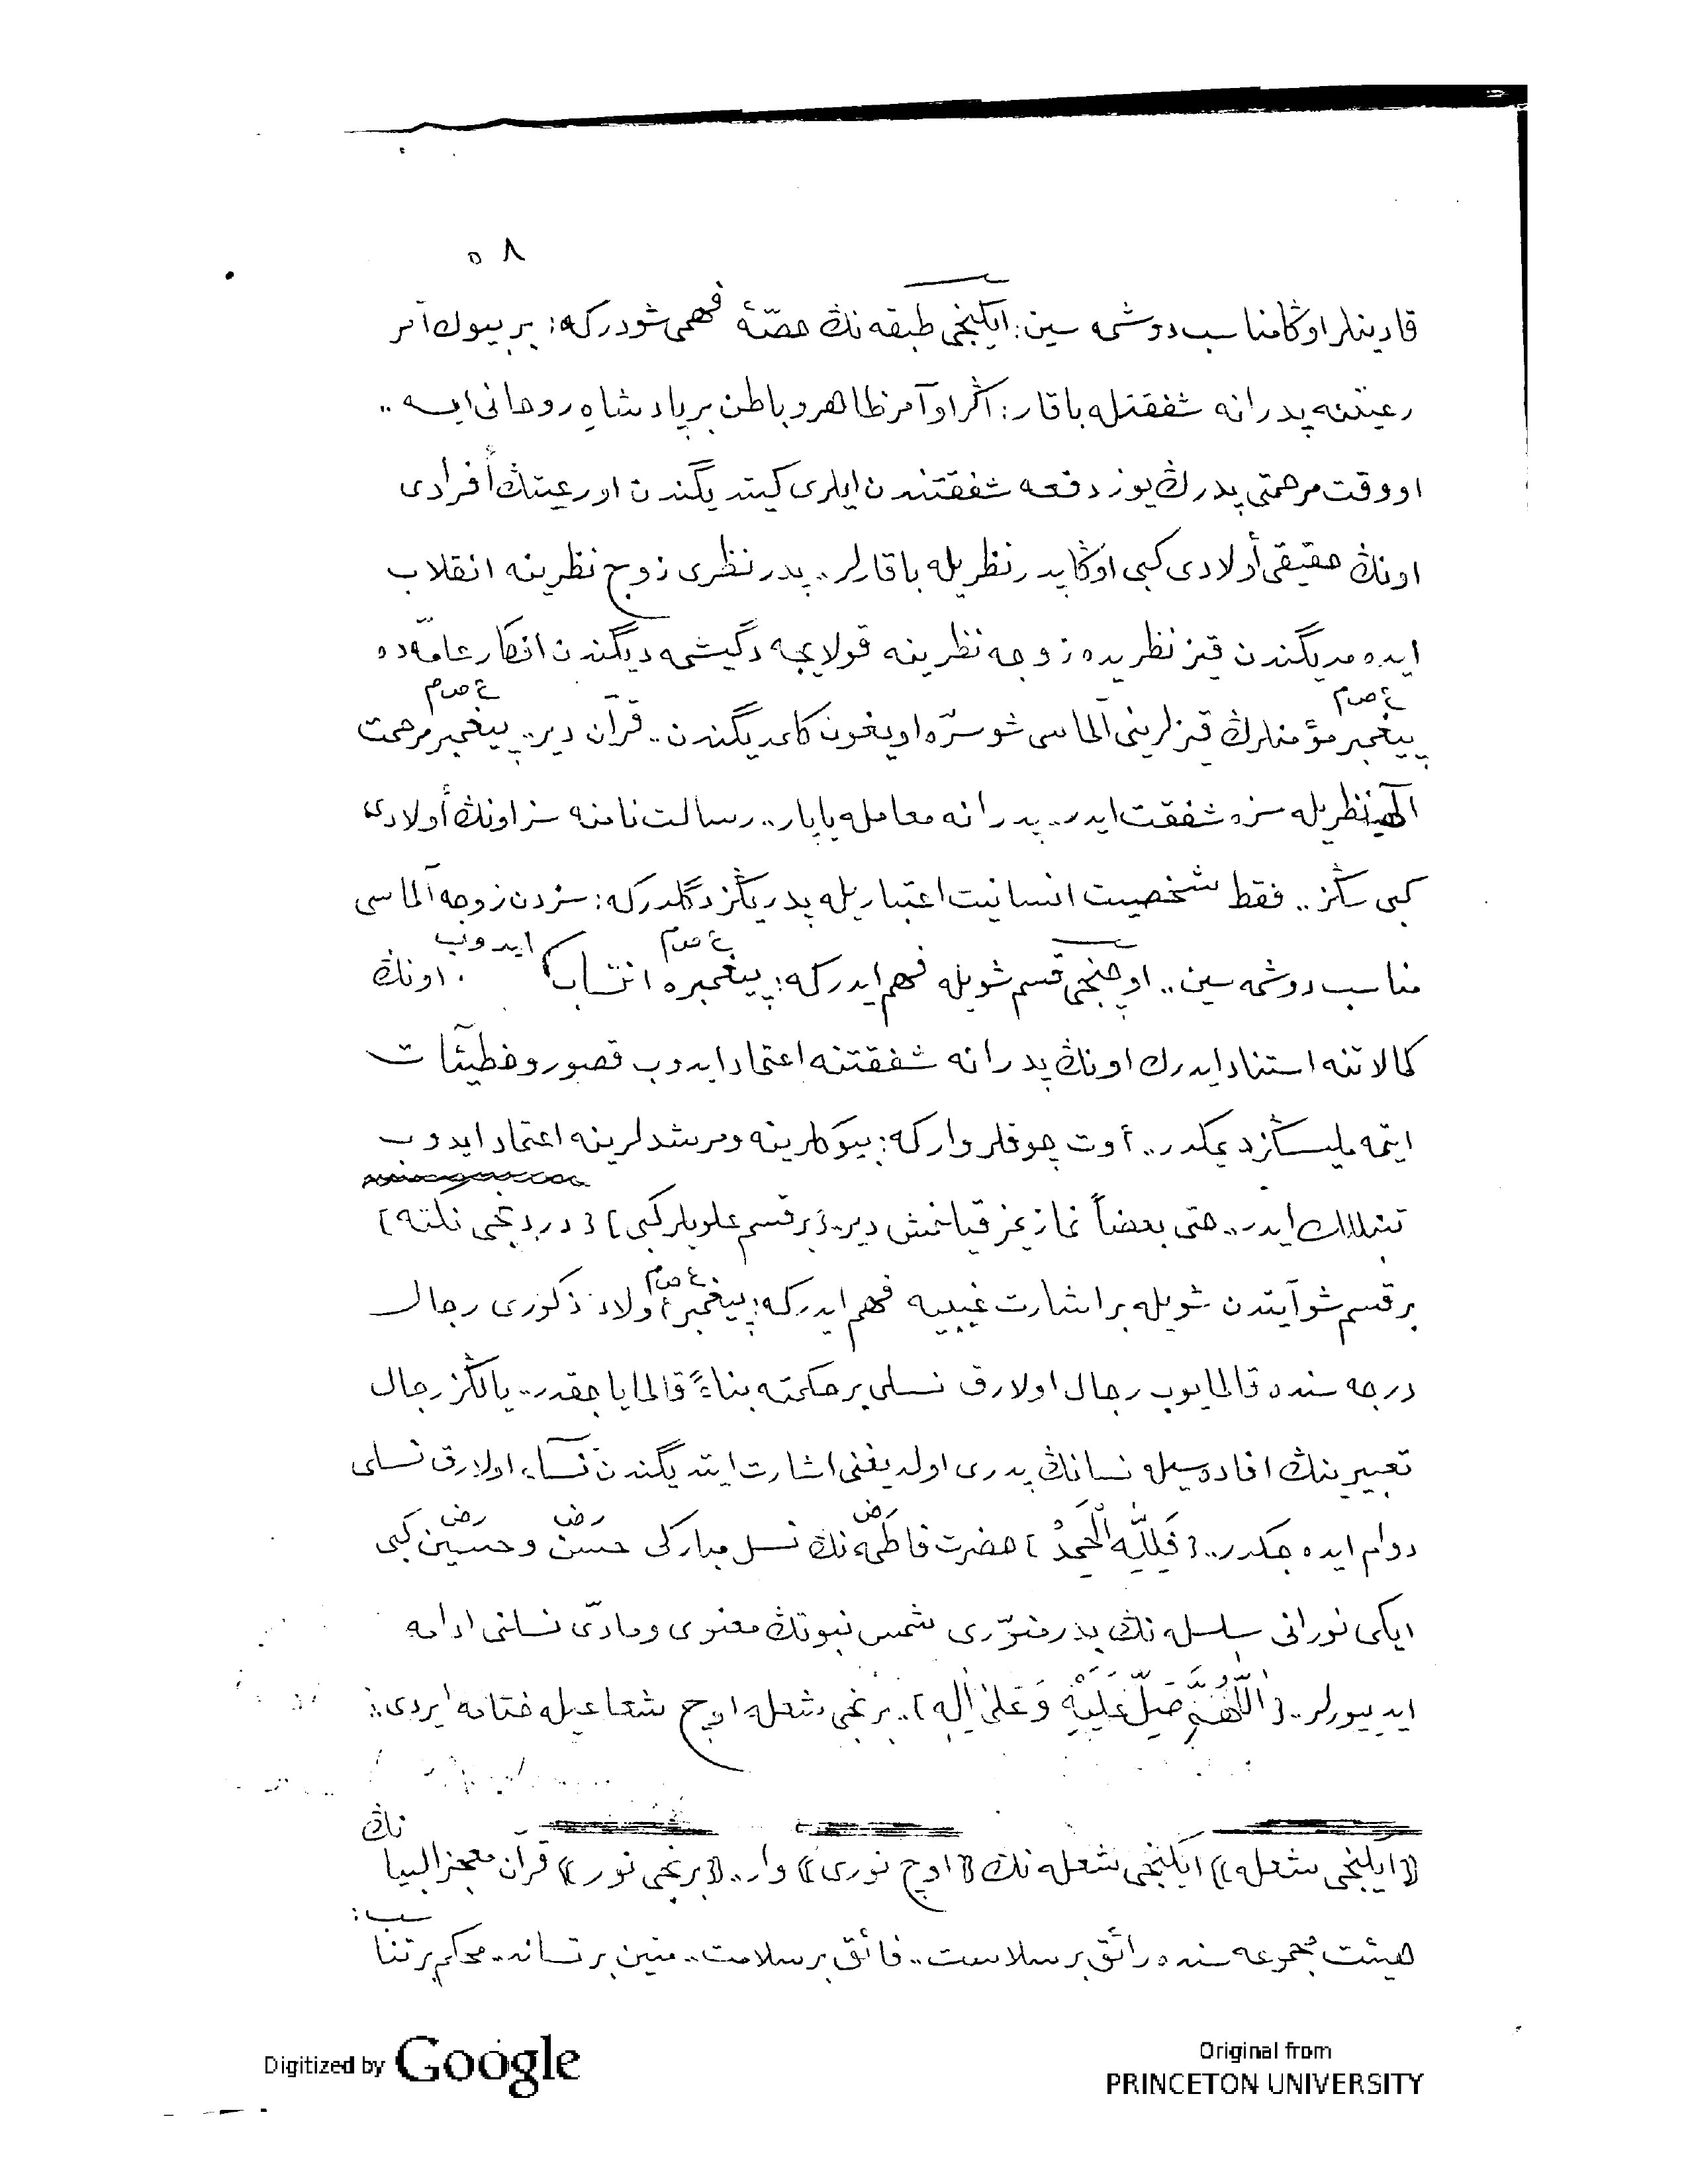 ٥٨
قادينلر اوڭا مناسب دوشمه سين: ايكنجى طبقه نڭ حصّۀ فهمى شودركه: بر بيوك آمر
رعيتنه پدرانه شفقتله باقار: اگر او آمر ظاهر و باطن بر پادشاهِ روحانى ايسه ..
او وقت مرحمتى پدرڭ يوز دفعه شفقتندن ايلرى كيتديگندن او رعيتڭ أفرادى
اونڭ حقيقى أولادى كبى اوڭا پدر نظريله باقارلر.. پدر نظرى زوج نظرينه انقلاب
ايده مديگندن قيز نظريده زوجه نظرينه قولايجه دگيشمه ديگندن افكار عامّه ده
پيغمبر ع ص م مؤمنلرڭ قيزلرينى آلماسى شو سرّه اويغون كلمديگندن.. قرآن دير.. پيغمبر ع ص م مرحمت
الٓهيه نظريله سزه شفقت ايدر.. پدرانه معامله ياپار.. رسالت نامنه سز اونڭ أولادى
كبى سڭز.. فقط شخصيت انسانيت اعتباريله پدريڭز دگلدركه: سزدن زوجه آلماسى
مناسب دوشمه سين.. اوچنجى قسم شويله فهم ايدركه: پيغمبره ع ص م انتساب ايدوب. اونڭ
كمالاتنه استناد ايدرك اونڭ پدرانه شفقتنه اعتماد ايدوب قصور و خطيئات
ايتمه مليسڭز ديمكدر.. أوت چوقلر واركه: بيوكلرينه و مرشدلرينه اعتماد ايدوب
تنبللك ايدر.. حتى بعضاً نمازيمز قيلنمش دير.. {بر قسم علويلر كبى} {دردنجى نكته}
بر قسم شو آيتدن شويله بر اشارت غيبيه فهم ايدركه: پيغمبر ع ص م أولاد ذكورى رجال
درجه سنده قالمايوب رجال اولارق نسلى بر حكمته بناءً قالمايا جقدر.. يالڭز رجال
تعبيرينڭ افاده سيله نسانڭ پدرى اولديغنى اشارت ايتديگندن نسآء اولارق نسلى
دوام ايده جكدر.. {فَلِلّٰهِ الْحَمْدُ} حضرت فاطمه رض نڭ نسل مباركى حسن رض و حسين رض كبى
ايكى نورانى سلسله نڭ بدر منوّرى شمس نبوتڭ معنوى و مادّى نسلنى ادامه
ايدييورلر.. {اَللّٰهُمَّ صَلِّ عَلَيْهِ وَعَلٰى اٰلِهِ}.. برنجى شعله اوچ شعاعيله ختامه ايردى:
﴿ايكنجى شعله﴾ ايكنجى شعله نڭ ﴿اوچ نورى﴾ وار.. ﴿برنجى نور﴾ قرآن معجز البيا نڭ
هيئت مجموعه سنده رائق بر سلاست.. فائق بر سلامت.. متين بر تساند.. محكم بر تنا سب:
Digitized by Google
Original from
PRINCETON UNIVERSITY